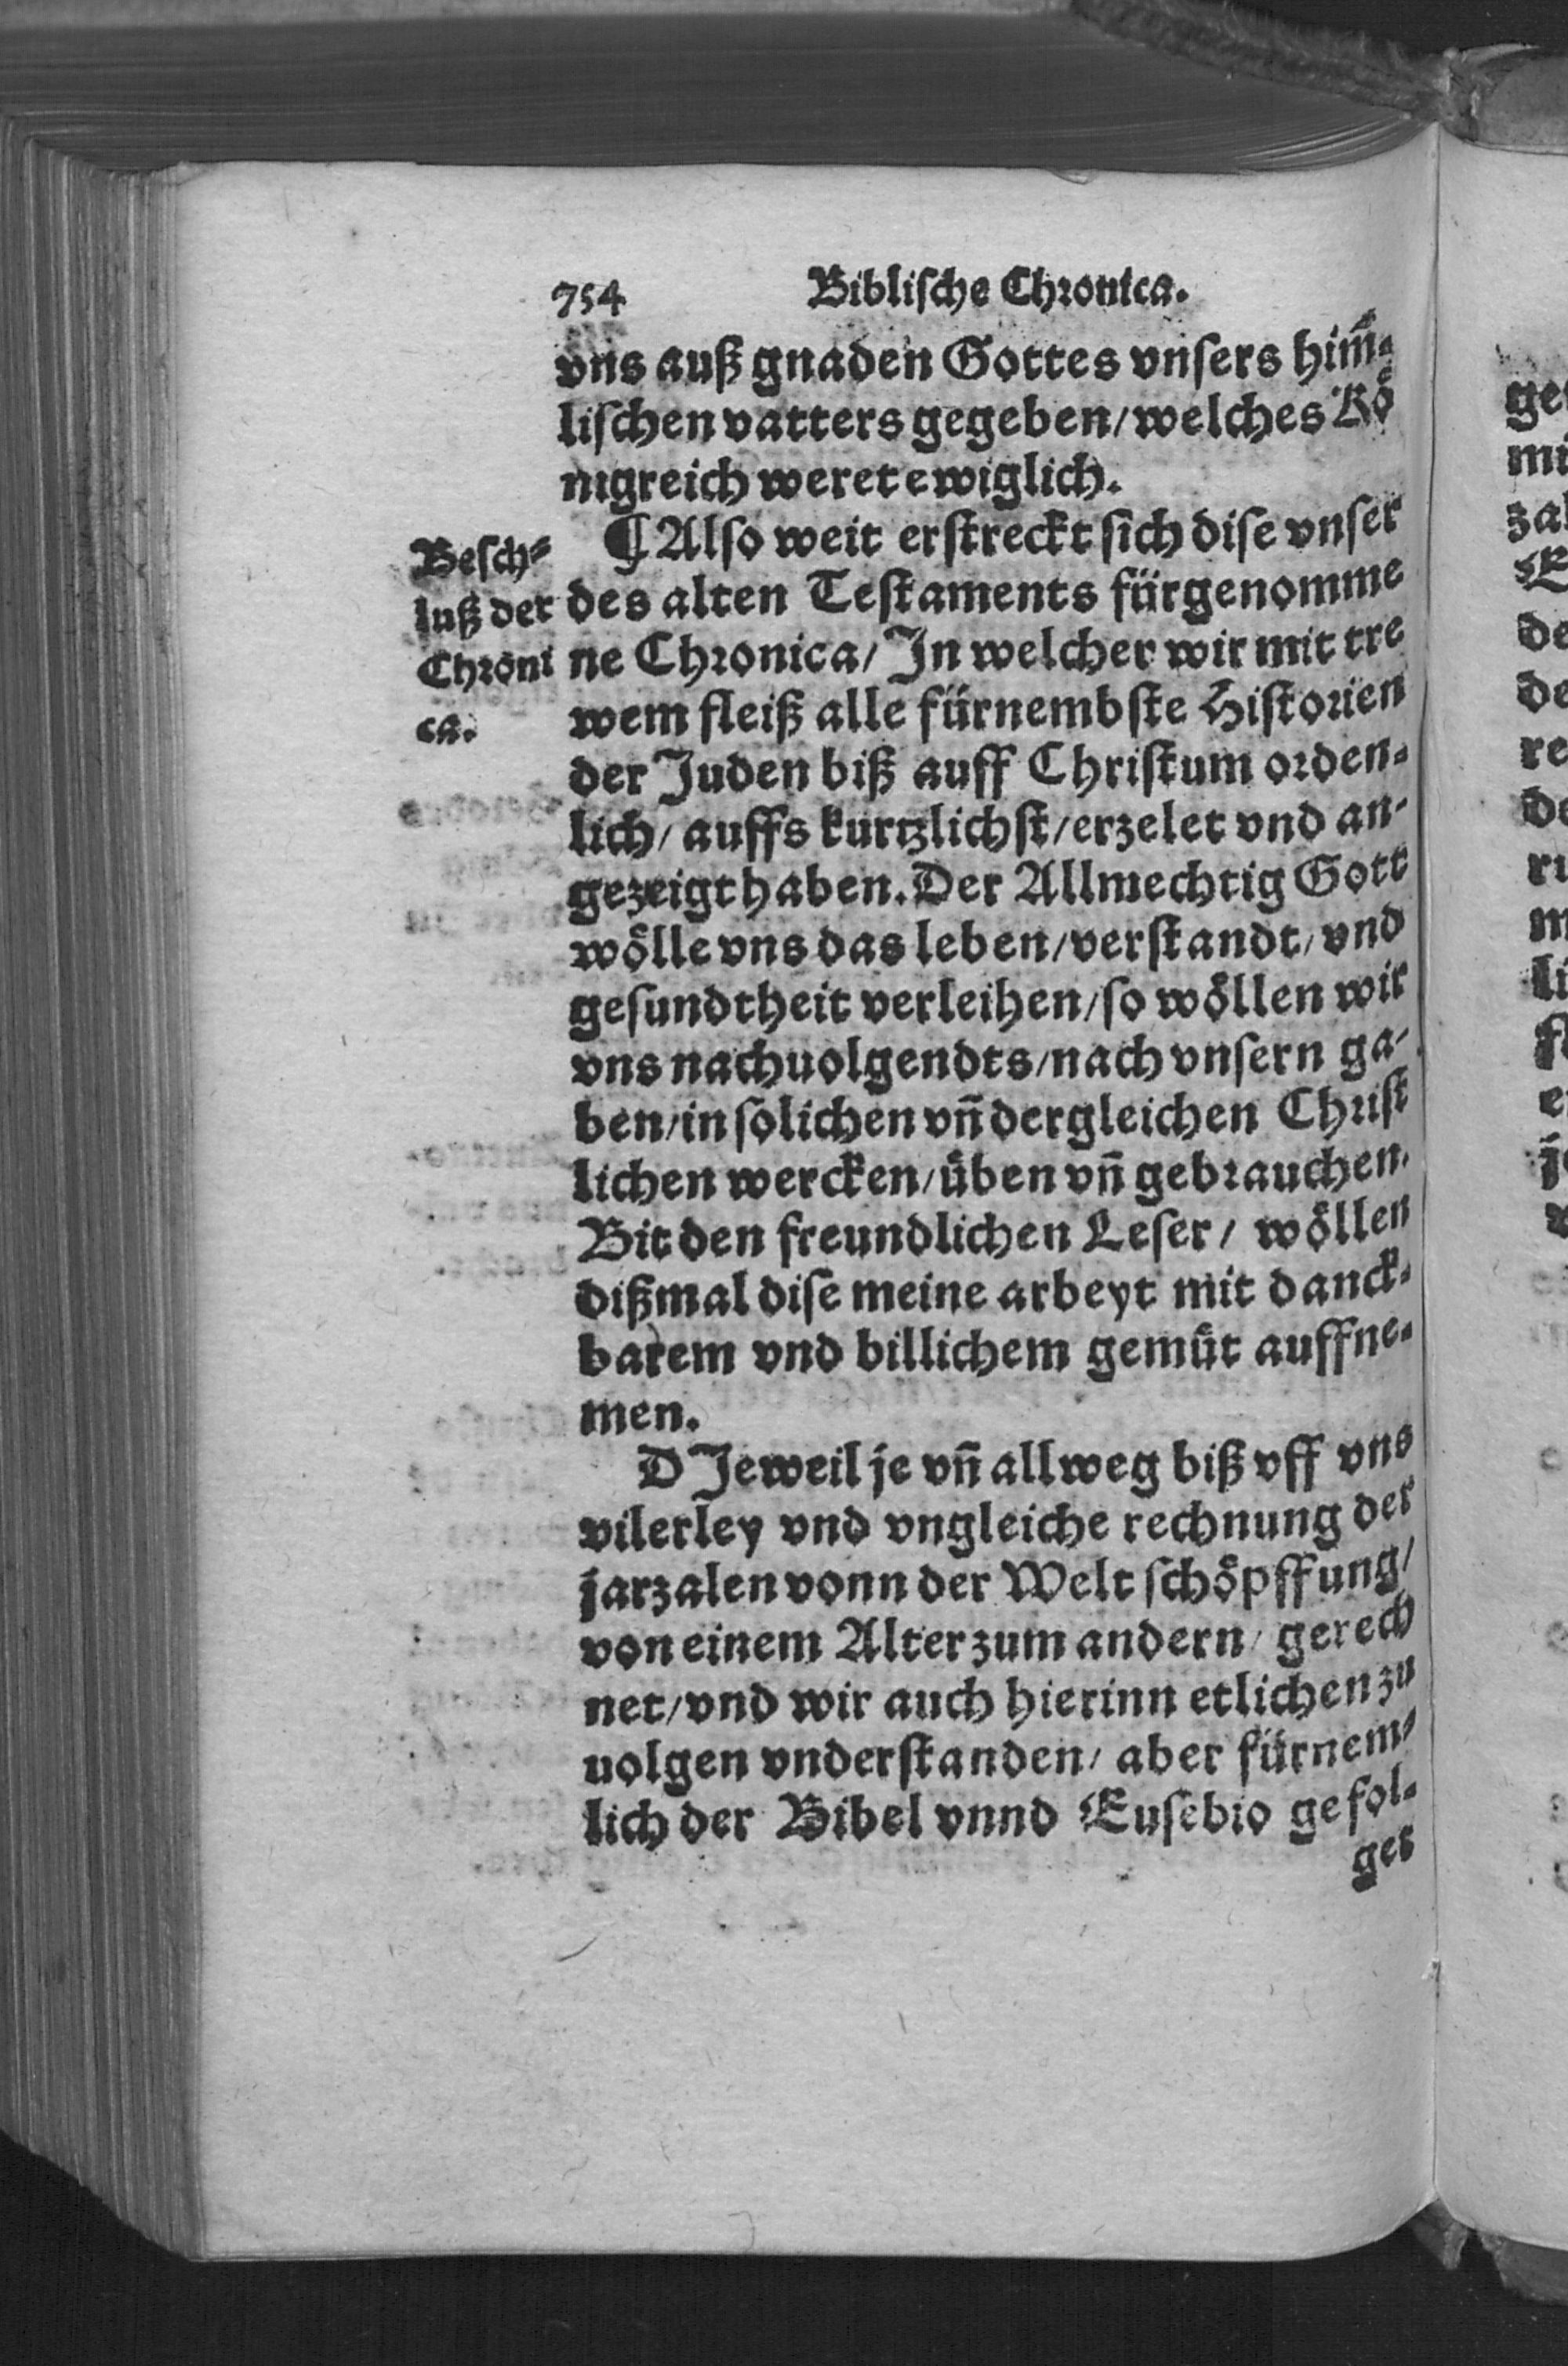 754 Biblische Chronica.
vns auß gnaden Gottes vnsers him̄⸗
lischen vatters gegeben/welches Kö
nigreich weret ewiglich.
¶ Also weit erstreckt sich dise vnser
des alten Testaments fürgenomme
ne Chronica/ In welcher wir mit tre
wem fleiß alle fürnembste Historien
der Juden biß auff Christum orden⸗
lich/ auffs kurtzlichst/erzelet vnd an⸗
gezeigt haben. Der Allmechtig Gott
wölle vns das leben/verstandt/vnd
gesundtheit verleihen/so wöllen wir
vns nachuolgendts/nach vnsern ga⸗
ben/in solichen vn̄ dergleichen Christ
lichen wercken/üben vn̄ gebrauchen.
Bit den freundlichen Leser/ wöllen
dißmal dise meine arbeyt mit danck⸗
barem vnd billichem gemüt auffne⸗
men.
DJeweil je vn̄ allweg biß vff vns
vilerley vnd vngleiche rechnung der
jarzalen vonn der Welt schöpffung/
von einem Alter zum andern/ gerech
net/vnd wir auch hierinn etlichen zu
uolgen vnderstanden/ aber fürnem⸗
lich der Bibel vnnd Eusebio gefol⸗
get
Besch⸗
luß der
Chroni
ca.